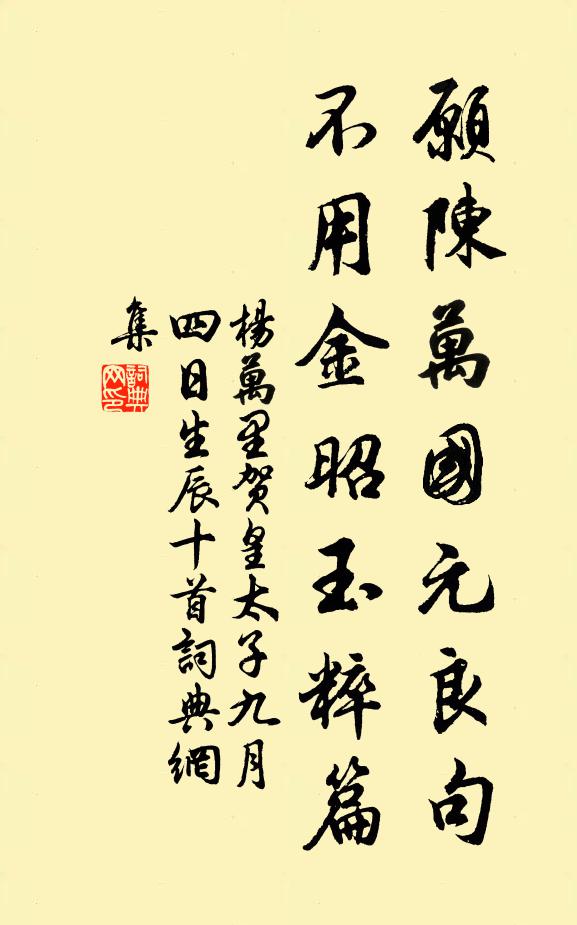 願陳萬國元良句
不用金昭玉粹篇
楊萬里賀皇太子九月
四日生辰十首詞典網
集
詞典
网印